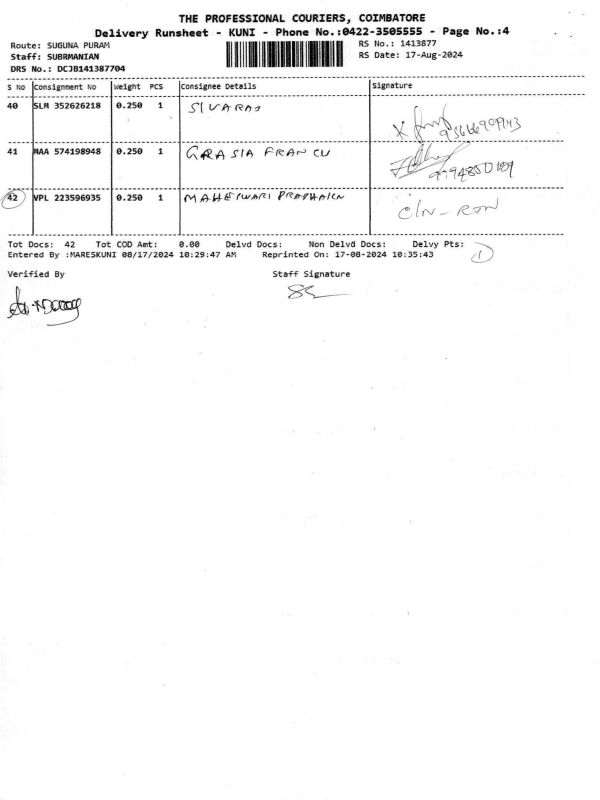 THE PROFESSIONAL COURIERS, COIMBATORE
Delivery Runsheet - KUNI - Phone No.:0422-3505555 - Page No.:4
Route: SUGUNA PURAM RS No.: 1413877
Staff: SUBRMANIAN RS Date: 17-Aug-2024
DRS No.: DCJB141387704
S No Consignment No Weight PCS Consignee Details Signature
40 SLM 352626218 0.250 1 SIVARAJ
41 MAA 574198948 0.250 1 GRASIA FRAN CU
42 VPL 223596935 0.250 1 MAHESWARI
Tot Docs: 42 Tot COD Amt: 0.00 Delvd Docs: Non Delvd Docs: Delvy Pts: 1
Entered By :MARESKUNI 08/17/2024 10:29:47 AM Reprinted On: 17-08-2024 10:35:43
Verified By Staff Signature